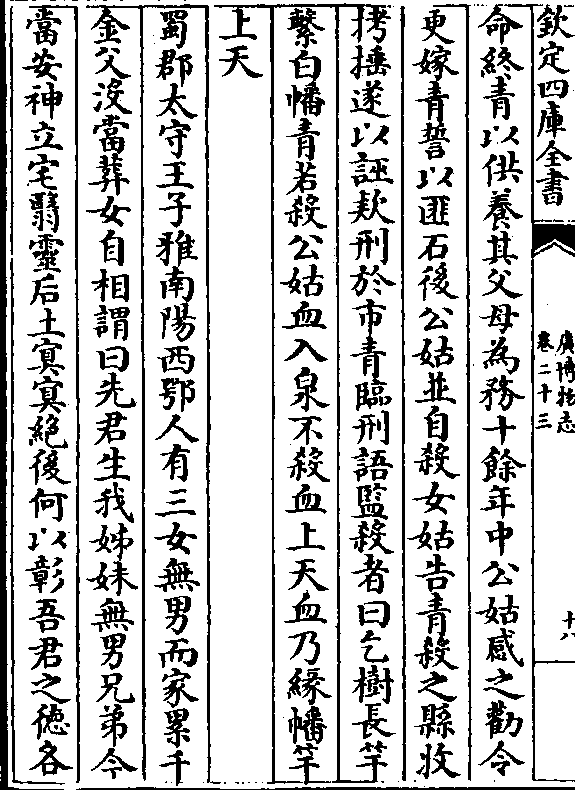 欽定四庫全書
廣博物志
卷二十三
十八
命終青以供養其父母為務十餘年中公姑感之勸令
更嫁青誓以匪石後公姑並自殺女姑告青殺之縣收
拷捶遂以誣欵刑於市青臨刑語監殺者曰乞樹長竿
繫白幡青若殺公姑血入泉不殺血上天血乃緣幡竿
上天
蜀郡太守王子雅南陽西鄂人有三女無男而家累千
金父沒當葬女自相謂曰先君生我姊妹無男兄弟今
當安神立宅翳靈后土冥冥絕後何以彰吾君之德各